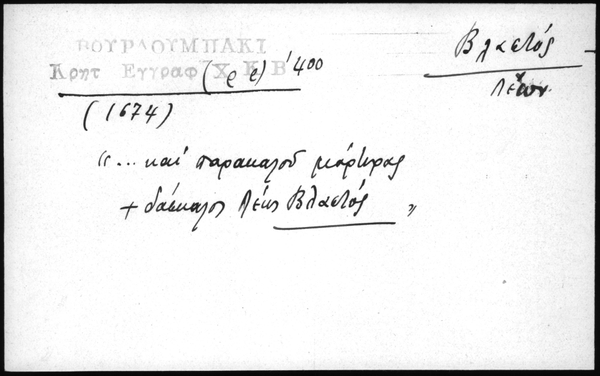 ΒΟΥΡΔΟΥΜΠΑΚΙ
Κρητ Εγγραφ Χ Κ Β
(ρ ε) '400
Βλαστός
Λέων
(1674)
"... και παρακαλού μάρτυρας
+ δάσκαλος Λέως Βλαστός "